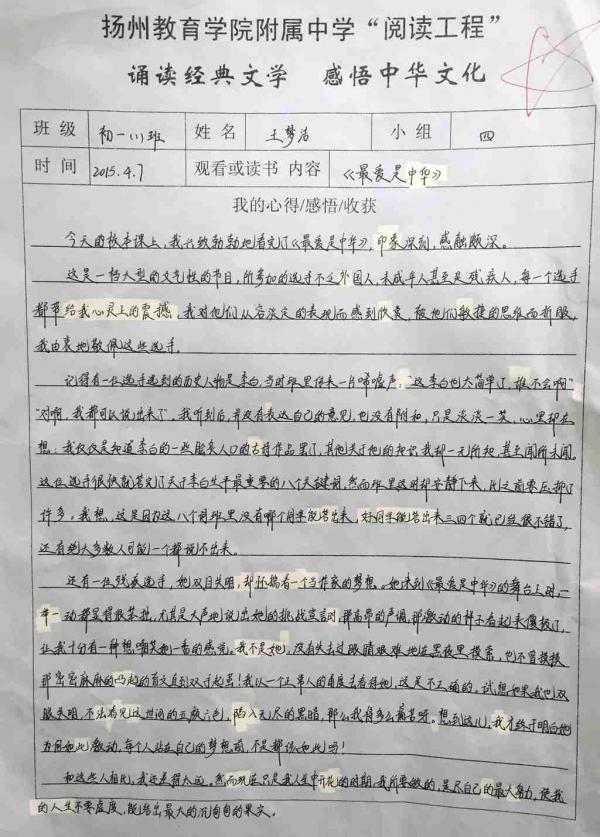 扬州教育学院附属中学“阅读工程”
诵读经典文学 感悟中华文化
班级 初一(1)班 姓名 王梦洁 小组 四
时间 2015.4.7 观看或读书 内容 《最爱是中华》
我的心得/感悟/收获
今天的校本课上,我兴致勃勃地看完了《最爱是中华》,印象深刻,感触颇深。
这是一档大型的文艺性的节目,所参加的选手不乏外国人,未成年人甚至是残疾人,每一个选手
都带给我心灵上的震撼,我对他们从容淡定的表现而感到欣赏,被他们敏捷的思维而折服,
我由衷地敬佩这些选手。
记得有一位选手选到的历史人物是李白,当时班里传来一片唏嘘声:“这李白也太简单了,谁不会啊”
“对啊,我都可以说出来了”。我听到后,并没有表达自己的意见,也没有附和,只是淡淡一笑,心里却在
想:我仅仅是知道李白的一些脍炙人口的古诗作品罢了,其他关于他的知识我却一无所知,甚至闻所未闻。
这位选手很快就答完了关于李白生平最重要的八个关键词,然而班里这时却安静下来,比之前要压抑了
许多。我想,这是因为这八个词班里没有哪个同学能答出来,好同学能答出来三四个就已经很不错了,
还有绝大多数人可能一个都说不出来。
还有一位残疾选手,她双目失明,却怀揣着一个当作家的梦想。她来到《最爱是中华》的舞台上时,一
举一动都显得很笨拙,尤其是大声地说出她的挑战宣言时,那高昂的声调,那激动的样子看起来傻极了,
让我十分有一种想嘲笑她一番的感觉。我不是她,没有失去过眼睛艰难地在黑夜里摸索,也不曾摸摸
那密密麻麻的凸起的盲文直到双手起茧!我以一个正常人的角度去看待她,这是不正确的,试想如果我也双
眼失明,无法看见这世间的五颜六色,陷入无尽的黑暗,那么我将多么痛苦呀。想到这儿,我才终于明白她
为何如此激动,每个人站在自己的梦想前,不是都该如此吗!
和这些人相比,我还差得太远。然而现在只是我人生中开花的时期,我所要做的,是尽自己的最大努力,使我
的人生不要虚度,能结出最大的沉甸甸的果实。